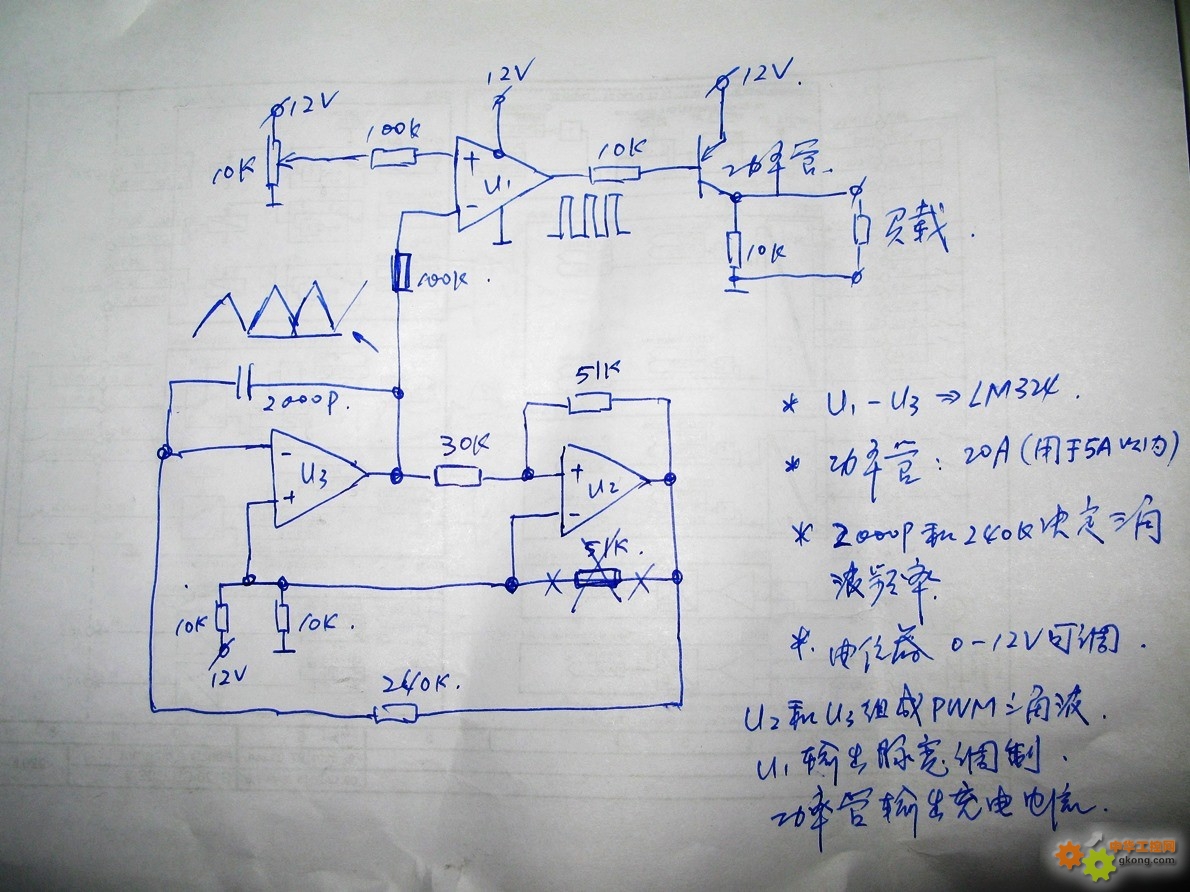 12V
12V
12V.
100K
10K
10K
+
U1
-
功率管.
10K
负载.
100K.
2000P.
51K
-
U3
+
30K
+
U2
-
51K.
10K
10K.
12V
240K.
* U1-U3 ⇒ LM324.
* 功率管: 20A (用于5A以内)
* 2000P和240K决定三角
波频率.
*. 电位器 0-12V可调.
U2和U3组成PWM三角波.
U1输出脉宽调制.
功率管输出充电电流.
中华工控网
gkong.com